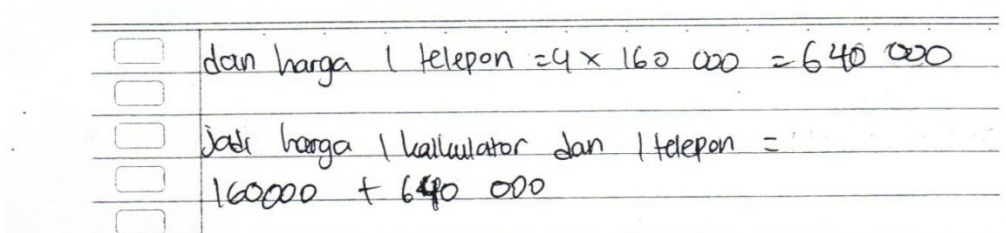 dan harga 1 telepon = 4 x 160 000 = 640 000
jadi harga 1 kalkulator dan 1 telepon =
160000 + 640 000